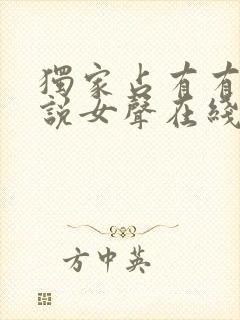 獨家占有有
說女聲在綫
方中英